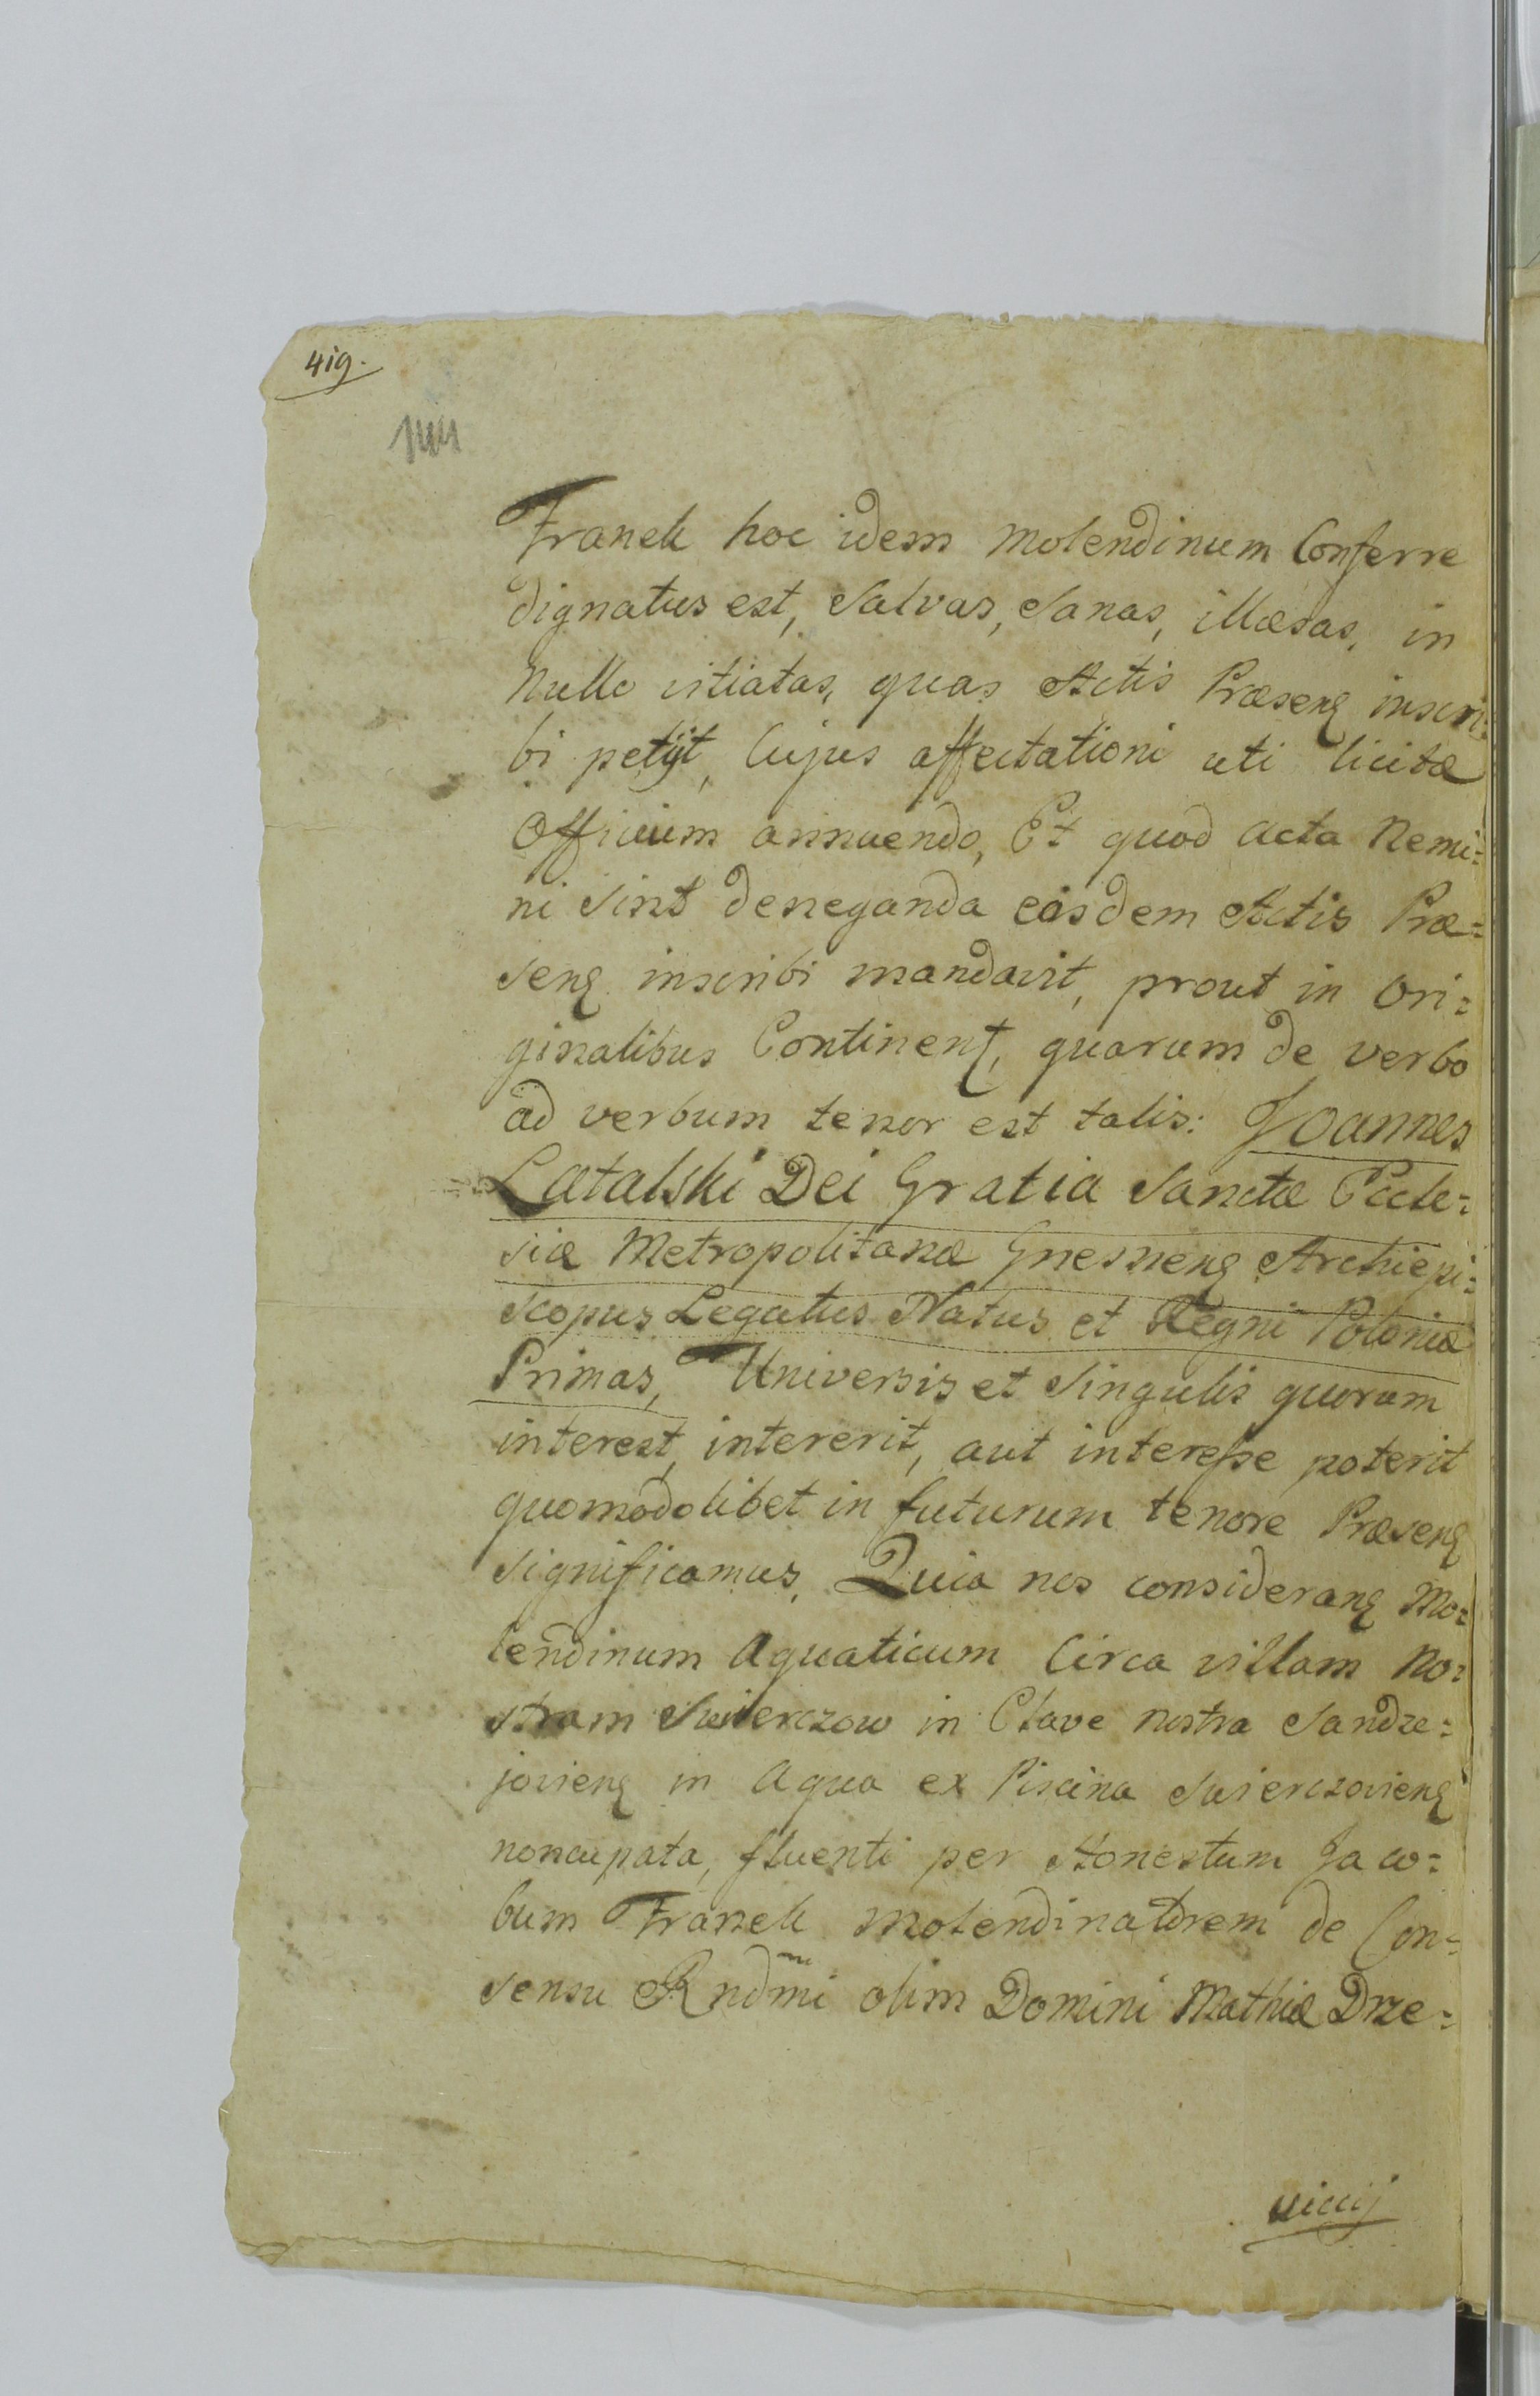 419.
Franek hoc idem Molendinum Conferre
dignatus est, Salvas, Sanas, illæsas, in
Nullo vitiatas, quas Actis Præsenꝫ inscri:
bi petijt, Cujus affectationi uti licitæ
Officium annuendo, Et quod acta Nemi:
ni Sint deneganda easdem Actis Præ:
senꝫ inscribi mandavit, prout in Ori:
ginalibus Continent, quarum de verbo
ad verbum tenor est talis: Joannes
Latalski Dei Gratia Sanctæ Eccle:
siæ Metropolitanæ Gnesnenꝫ Archiepi:
scopus Legatus Natus et Regni Poloniæ
Primas, Universis et Singulis quorum
interest, intererit, aut interesse poterit
quomodolibet in futurum tenore Præsenꝫ
significamus, Quia nos consideranꝫ Mo:
lendinum Aquaticum Circa villam No:
stram Swierczow in Clave nostra Sandze:
jovienꝫ in Aqua ex Piscina Swierczovienꝫ
noncupata, fluenti per Honestum Jaco:
bum Franek Molendinatorem de Con:
sensu Rndmi olim Domini Mathiæ Drze:
viccij